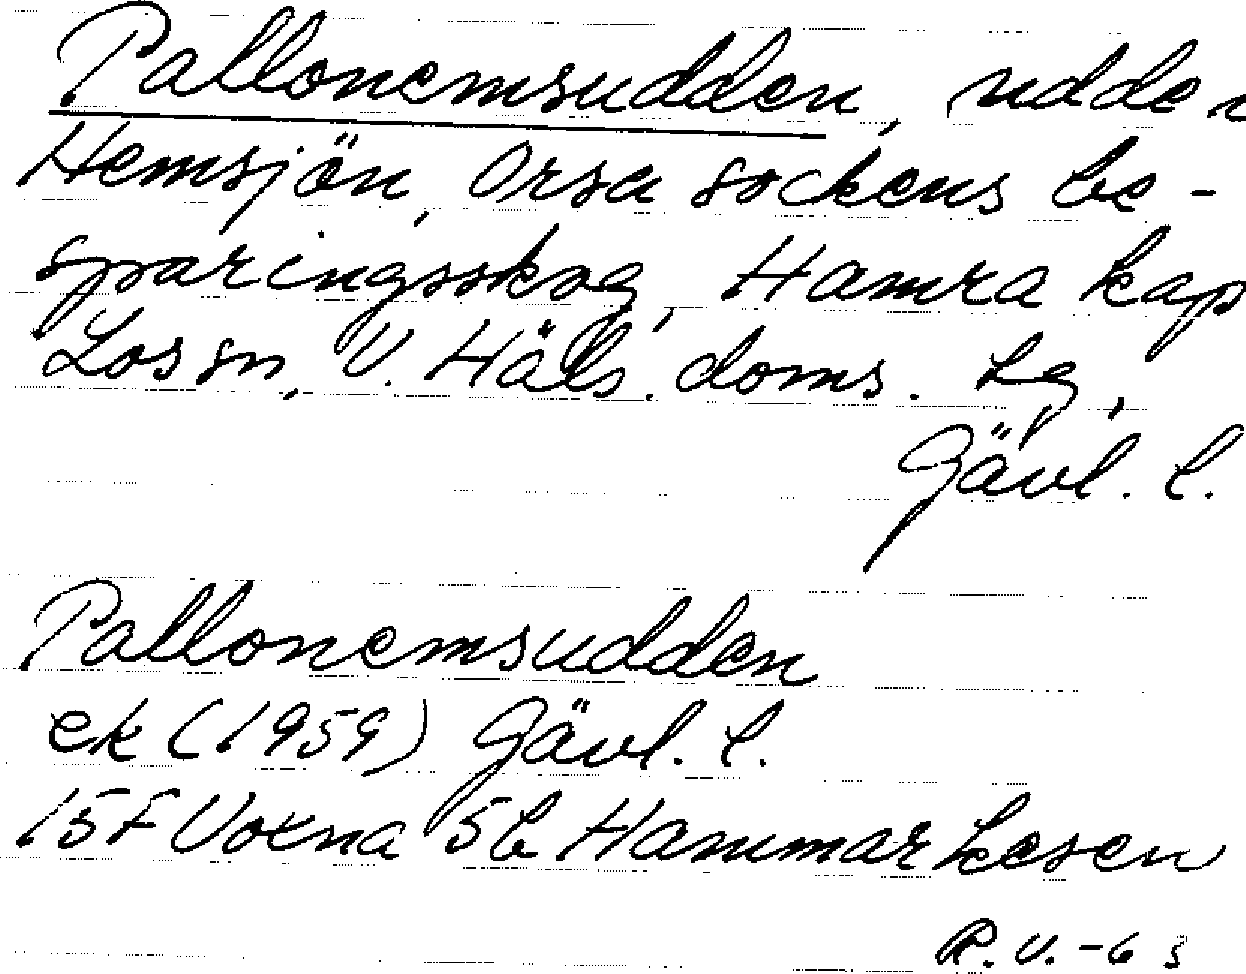 Pallonemsudden, udde i
Hemsjön, Orsa sockens be-
sparingsskog, Hamra kap
Los sn, V. Häls. doms. lg,
Gävl. l.
Pallonemsudden
ek (1959) Gävl. l.
15 F Voxna 5b Hammarkesen
R.V.-63